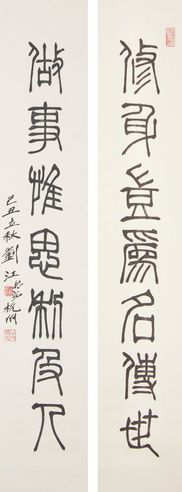 修身豈為名傳世
做事惟思利及人
己丑立秋劉江
杭州